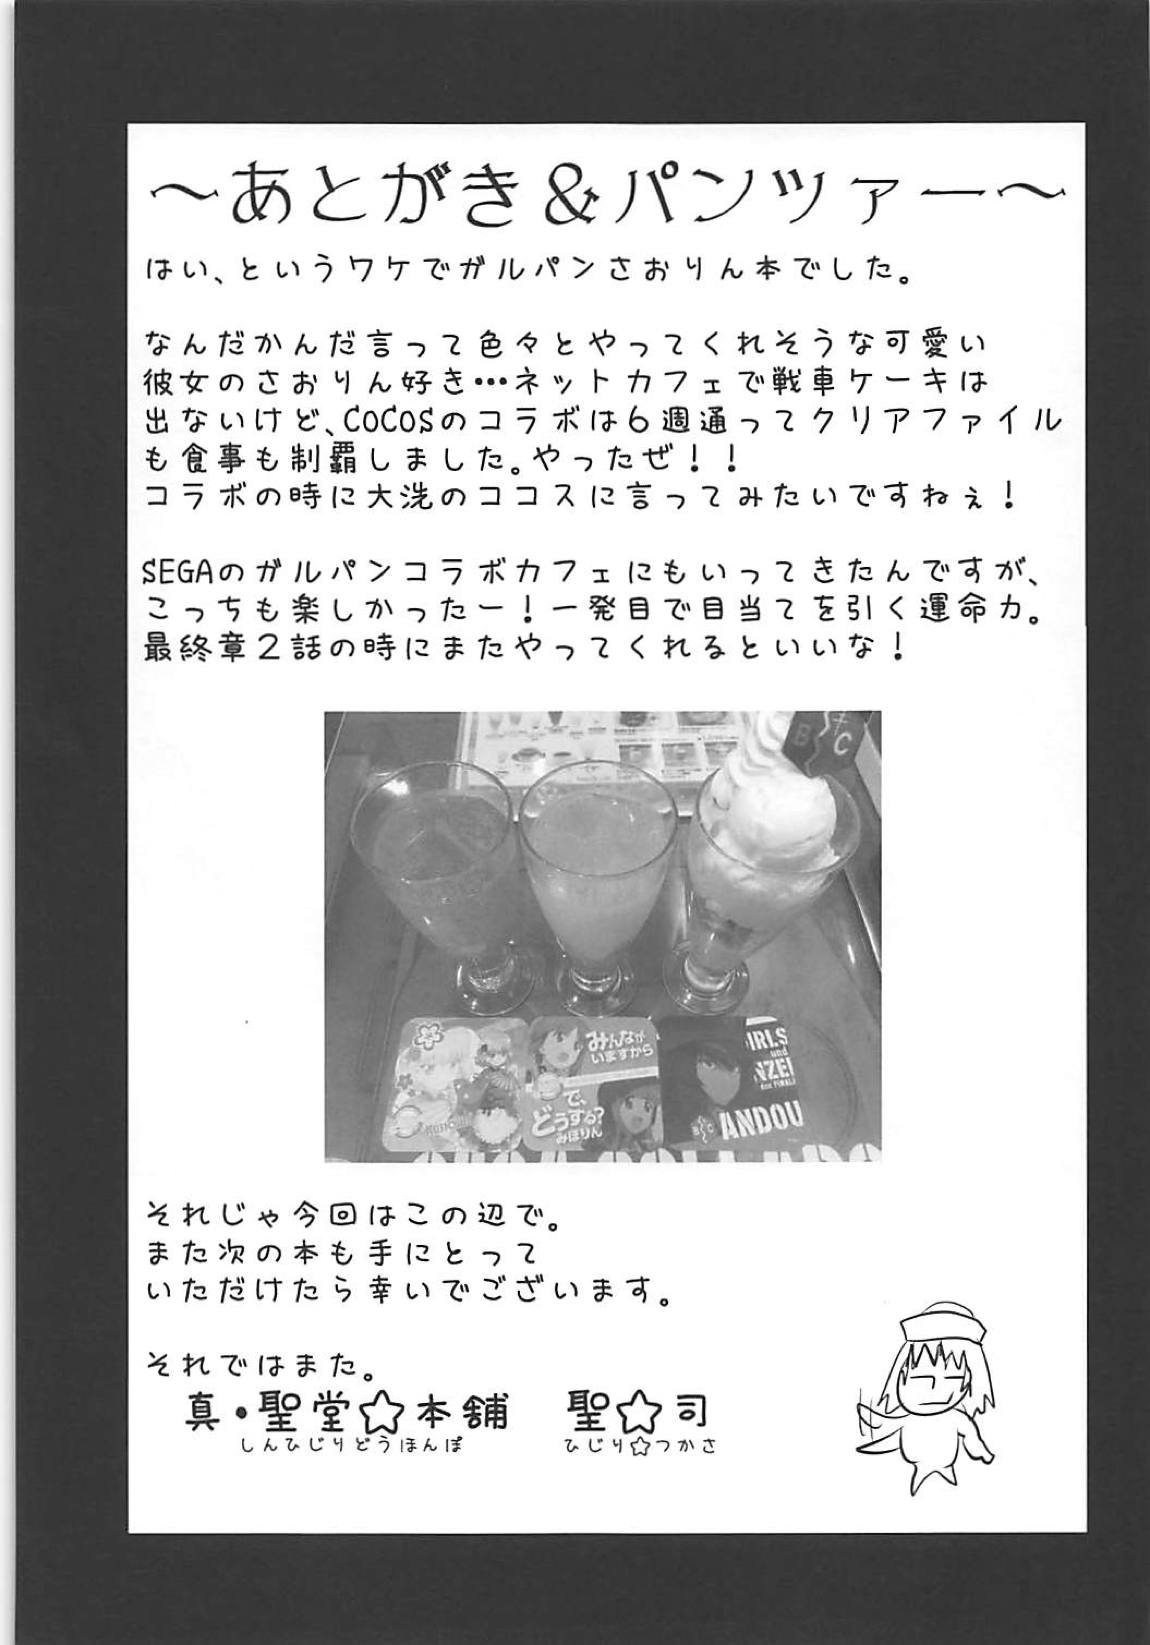 ～あとがき＆パンツァー～
はい、というワケでガルパンさおりん本でした。
なんだかんだ言って色々とやってくれそうな可愛い
彼女のさおりん好き…ネットカフェで戦車ケーキは
出ないけど、COCOSのコラボは6週通ってクリアファイル
も食事も制覇しました。やったぜ！！
コラボの時に大洗のココスに言ってみたいですねぇ！
SEGAのガルパンコラボカフェにもいってきたんですが、
こっちも楽しかったー！一発目で目当てを引く運命力。
最終章２話の時にまたやってくれるといいな！
B C
みんなが
いますから
で、
どうする?
みほりん
IRLS
und
NZEI
das FINALE
BC
ANDOU
それじゃ今回はこの辺で。
また次の本も手にとって
いただけたら幸いでございます。
それではまた。
真・聖堂☆本舗　聖☆司
しんひじりどうほんぽ　ひじり☆つかさ